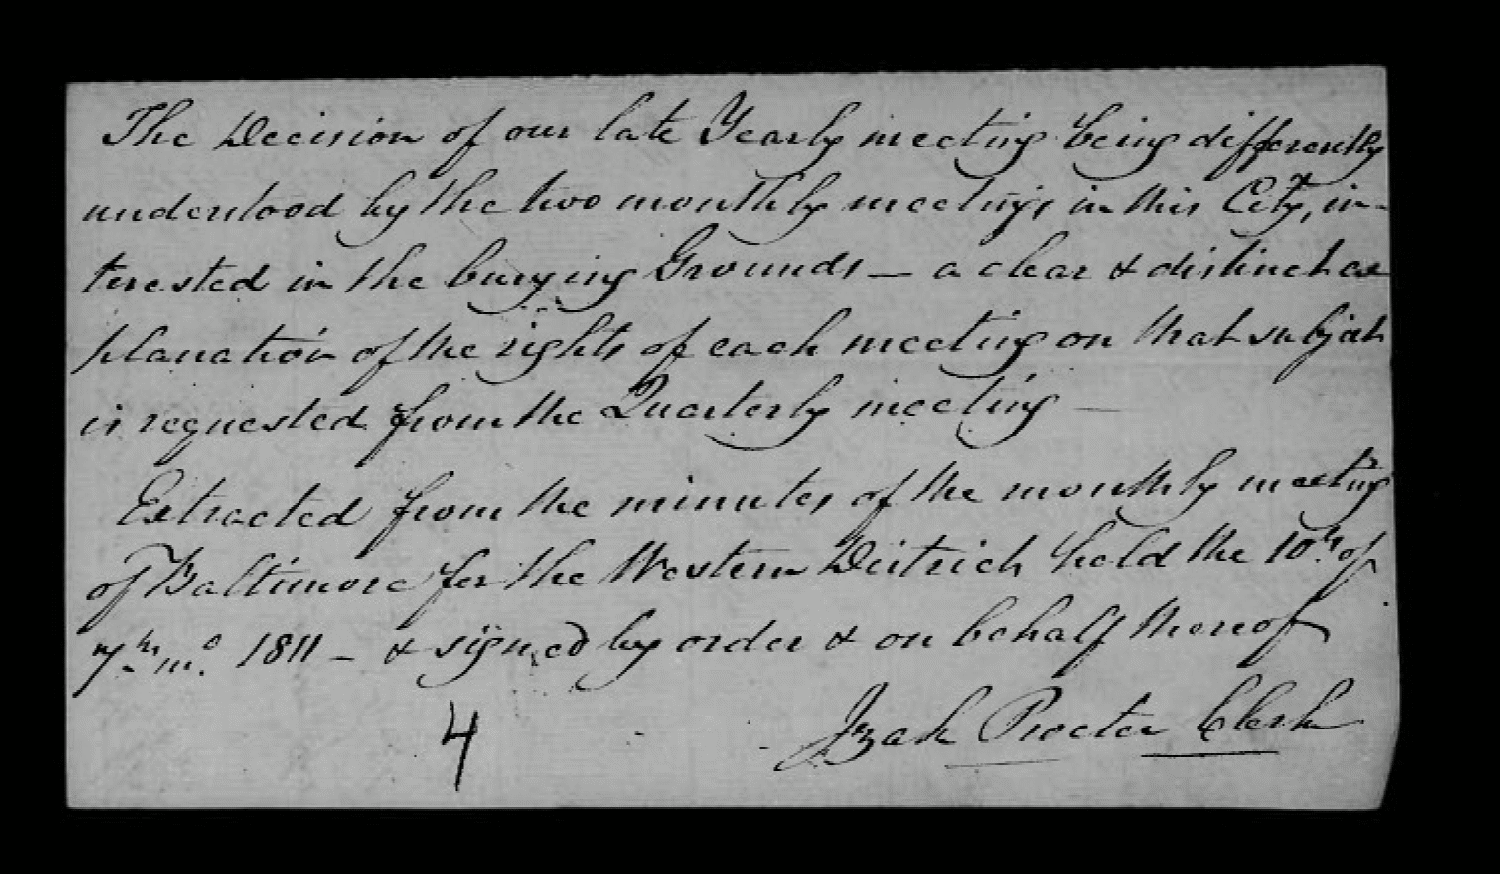 The Decision of our late Yearly meeting being differently
understood by the two monthly meetings in this City, in-
terested in the burying Grounds — a clear & distinct ex
planation of the rights of each meeting on that subject
is requested from the Quarterly meeting —
Extracted from the minutes of the monthly meeting
of Baltimore for the Western District held the 10th. of
7th mo. 1811 — & signed by order & on behalf thereof
Izak Procter Clerk
4